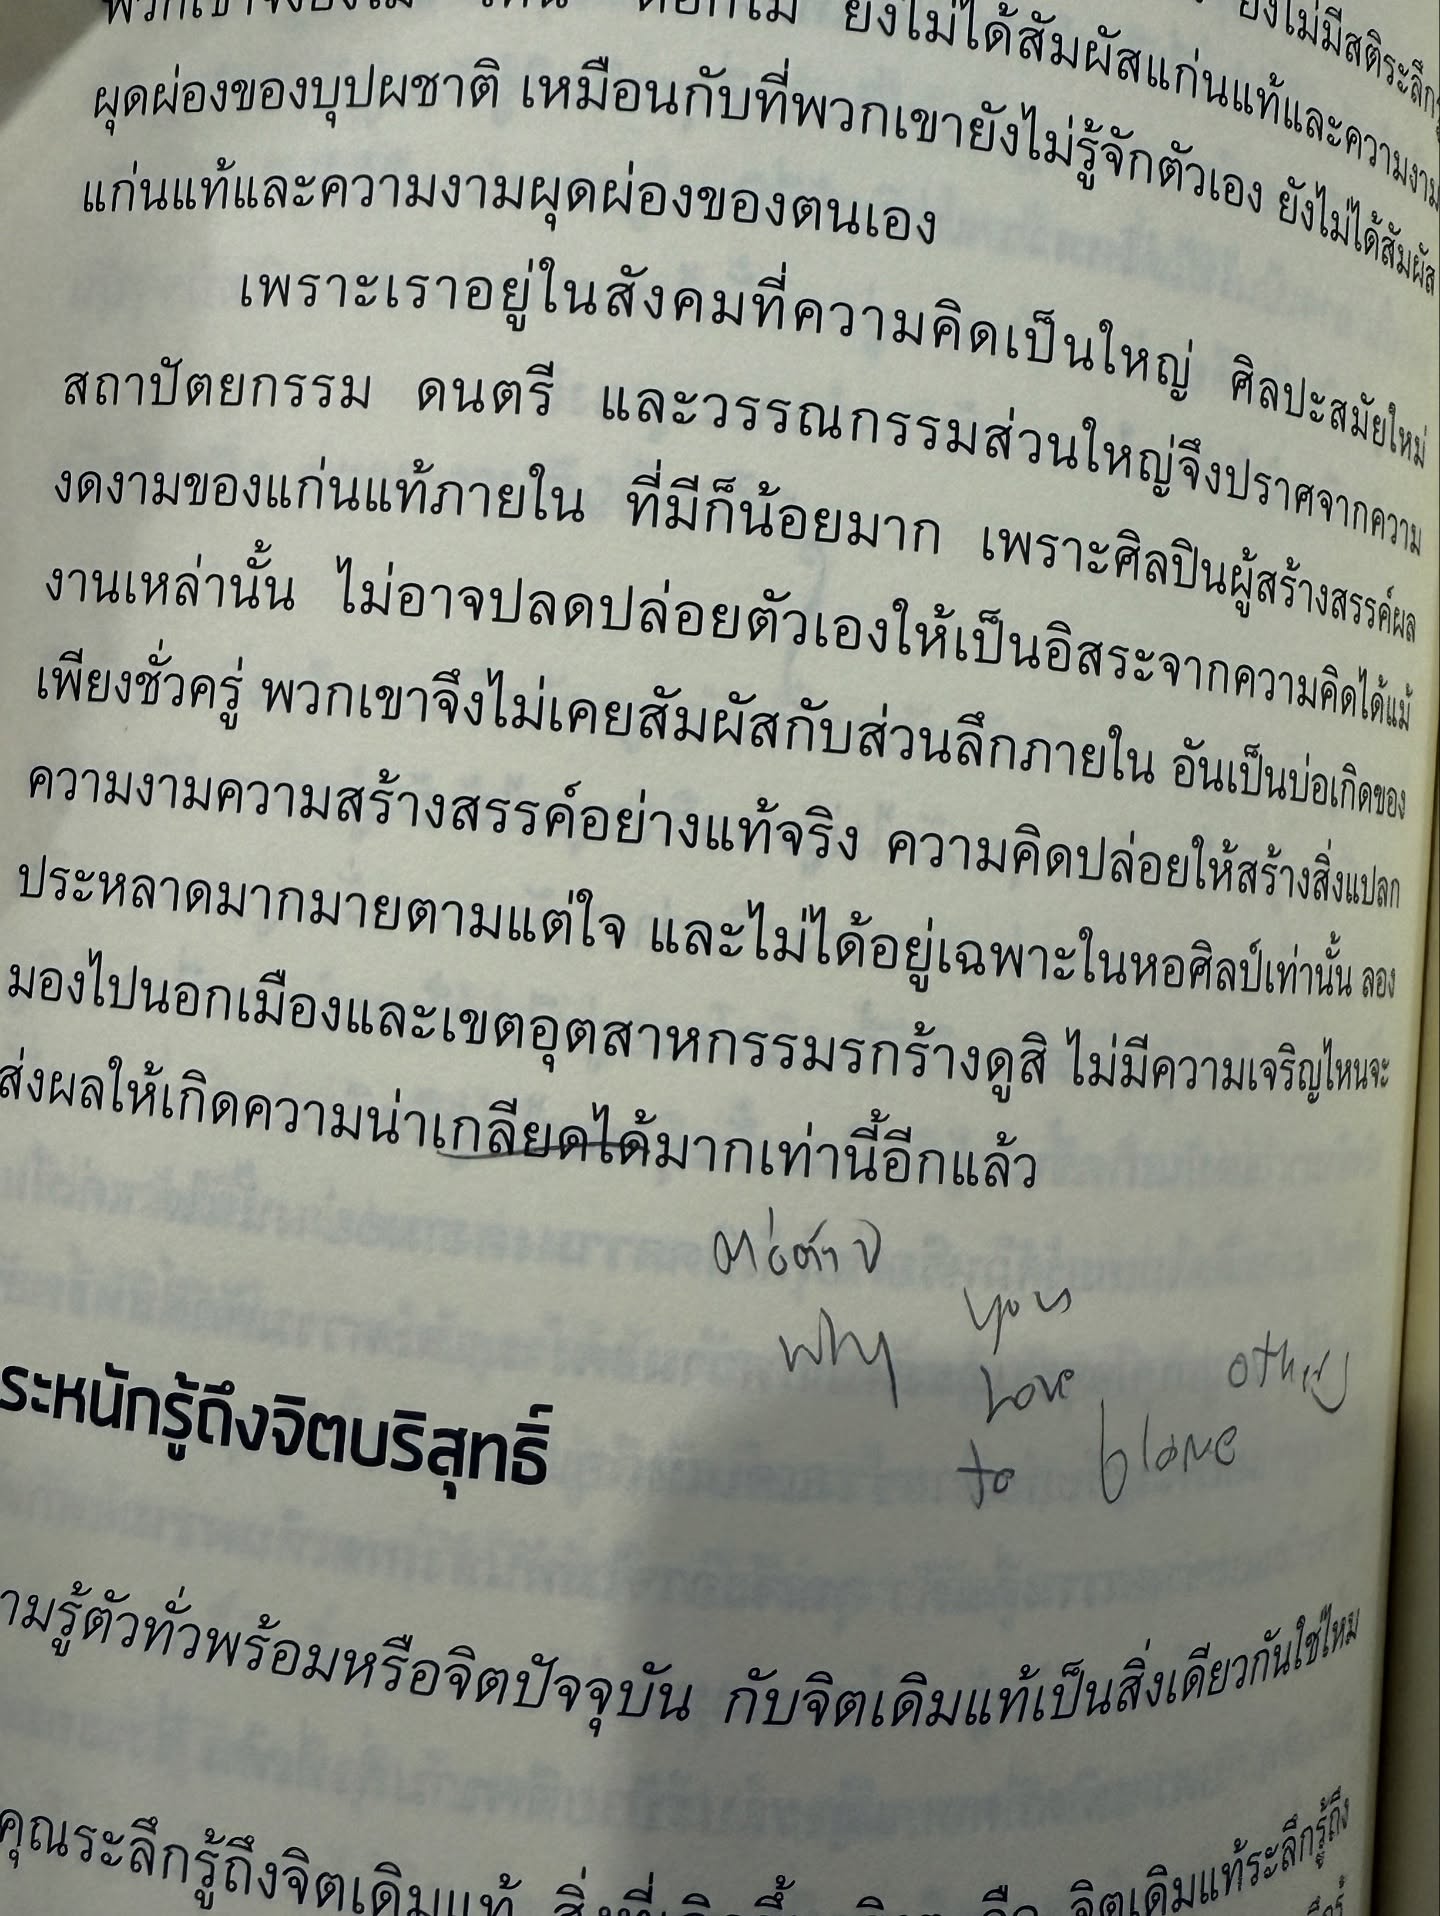 ยังไม่มีสติระลึกรู้
ยังไม่ได้สัมผัสแก่นแท้และความงาม
ผุดผ่องของบุปผชาติ เหมือนกับที่พวกเขายังไม่รู้จักตัวเอง ยังไม่ได้สัมผัส
แก่นแท้และความงามผุดผ่องของตนเอง
เพราะเราอยู่ในสังคมที่ความคิดเป็นใหญ่ ศิลปะสมัยใหม่
สถาปัตยกรรม ดนตรี และวรรณกรรมส่วนใหญ่จึงปราศจากความ
งดงามของแก่นแท้ภายใน ที่มีก็น้อยมาก เพราะศิลปินผู้สร้างสรรค์ผล
งานเหล่านั้น ไม่อาจปลดปล่อยตัวเองให้เป็นอิสระจากความคิดได้แม้
เพียงชั่วครู่ พวกเขาจึงไม่เคยสัมผัสกับส่วนลึกภายใน อันเป็นบ่อเกิดของ
ความงามความสร้างสรรค์อย่างแท้จริง ความคิดปล่อยให้สร้างสิ่งแปลก
ประหลาดมากมายตามแต่ใจ และไม่ได้อยู่เฉพาะในหอศิลป์เท่านั้น ลอง
มองไปนอกเมืองและเขตอุตสาหกรรมรกร้างดูสิ ไม่มีความเจริญไหนจะ
ส่งผลให้เกิดความน่าเกลียดได้มากเท่านี้อีกแล้ว
why you love to blame others
ระหนักรู้ถึงจิตบริสุทธิ์
ามรู้ตัวทั่วพร้อมหรือจิตปัจจุบัน กับจิตเดิมแท้เป็นสิ่งเดียวกันใช่ไหม
คุณระลึกรู้ถึงจิตเดิมแท้ จิตเดิมแท้ระลึกรู้ถึง